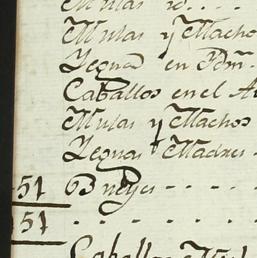 Mulas id....
Mulas y Machos
Yeguas en Pom.
Caballos en el A
Mulas y Machos
Yeguas Madres
51 Bueyes - - - - -
51 - - - - -
Caballos